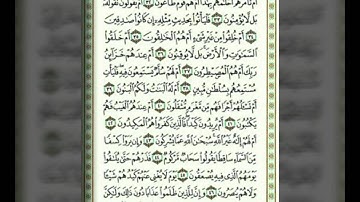 أَمْ تَأْمُرُهُمْ أَحْلَٰمُهُم بِهَٰذَآ أَمْ هُمْ قَوْمٌ طَاغُونَ ٣٢ أَمْ يَقُولُونَ تَقَوَّلَهُۥ
بَل لَّا يُؤْمِنُونَ ٣٣ فَلْيَأْتُوا۟ بِحَدِيثٍ مِّثْلِهِۦٓ إِن كَانُوا۟ صَٰدِقِينَ
٣٤ أَمْ خُلِقُوا۟ مِنْ غَيْرِ شَىْءٍ أَمْ هُمُ ٱلْخَٰلِقُونَ ٣٥ أَمْ خَلَقُوا۟
ٱلسَّمَٰوَٰتِ وَٱلْأَرْضَ بَل لَّا يُوقِنُونَ ٣٦ أَمْ عِندَهُمْ خَزَآئِنُ
رَبِّكَ أَمْ هُمُ ٱلْمُصَۜيْطِرُونَ ٣٧ أَمْ لَهُمْ سُلَّمٌ يَسْتَمِعُونَ فِيهِ فَلْيَأْتِ
مُسْتَمِعُهُم بِسُلْطَٰنٍ مُّبِينٍ ٣٨ أَمْ لَهُ ٱلْبَنَٰتُ وَلَكُمُ ٱلْبَنُونَ ٣٩
أَمْ تَسْـَٔلُهُمْ أَجْرًا فَهُم مِّن مَّغْرَمٍ مُّثْقَلُونَ ٤٠ أَمْ عِندَهُمُ ٱلْغَيْبُ فَهُمْ
يَكْتُبُونَ ٤١ أَمْ يُرِيدُونَ كَيْدًا فَٱلَّذِينَ كَفَرُوا۟ هُمُ ٱلْمَكِيدُونَ
٤٢ أَمْ لَهُمْ إِلَٰهٌ غَيْرُ ٱللَّهِ سُبْحَٰنَ ٱللَّهِ عَمَّا يُشْرِكُونَ ٤٣ وَإِن يَرَوْا۟ كِسْفًا
مِّنَ ٱلسَّمَآءِ سَاقِطًا يَقُولُوا۟ سَحَابٌ مَّرْكُومٌ ٤٤ فَذَرْهُمْ حَتَّىٰ يُلَٰقُوا۟
يَوْمَهُمُ ٱلَّذِى فِيهِ يُصْعَقُونَ ٤٥ يَوْمَ لَا يُغْنِى عَنْهُمْ كَيْدُهُمْ شَيْـًٔا
وَلَا هُمْ يُنصَرُونَ ٤٦ وَإِنَّ لِلَّذِينَ ظَلَمُوا۟ عَذَابًا دُونَ ذَٰلِكَ وَلَٰكِنَّ